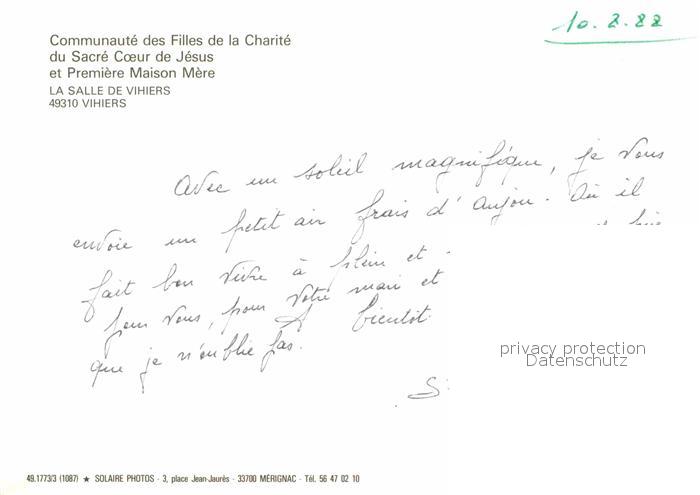 10.2.88
Communauté des Filles de la Charité
du Sacré Cœur de Jésus
et Première Maison Mère
LA SALLE DE VIHIERS
49310 VIHIERS
Avec un soleil magnifique, je vous
envoie un petit air frais d'Anjou. Où il
fait bon vivre à plein et
pour vous, pour votre mari et
que je n'oublie pas. A bientôt.
S.
privacy protection
Datenschutz
49.1773/3 (1087) ★ SOLAIRE PHOTOS - 3, place Jean-Jaurès - 33700 MÉRIGNAC - Tél. 56 47 02 10